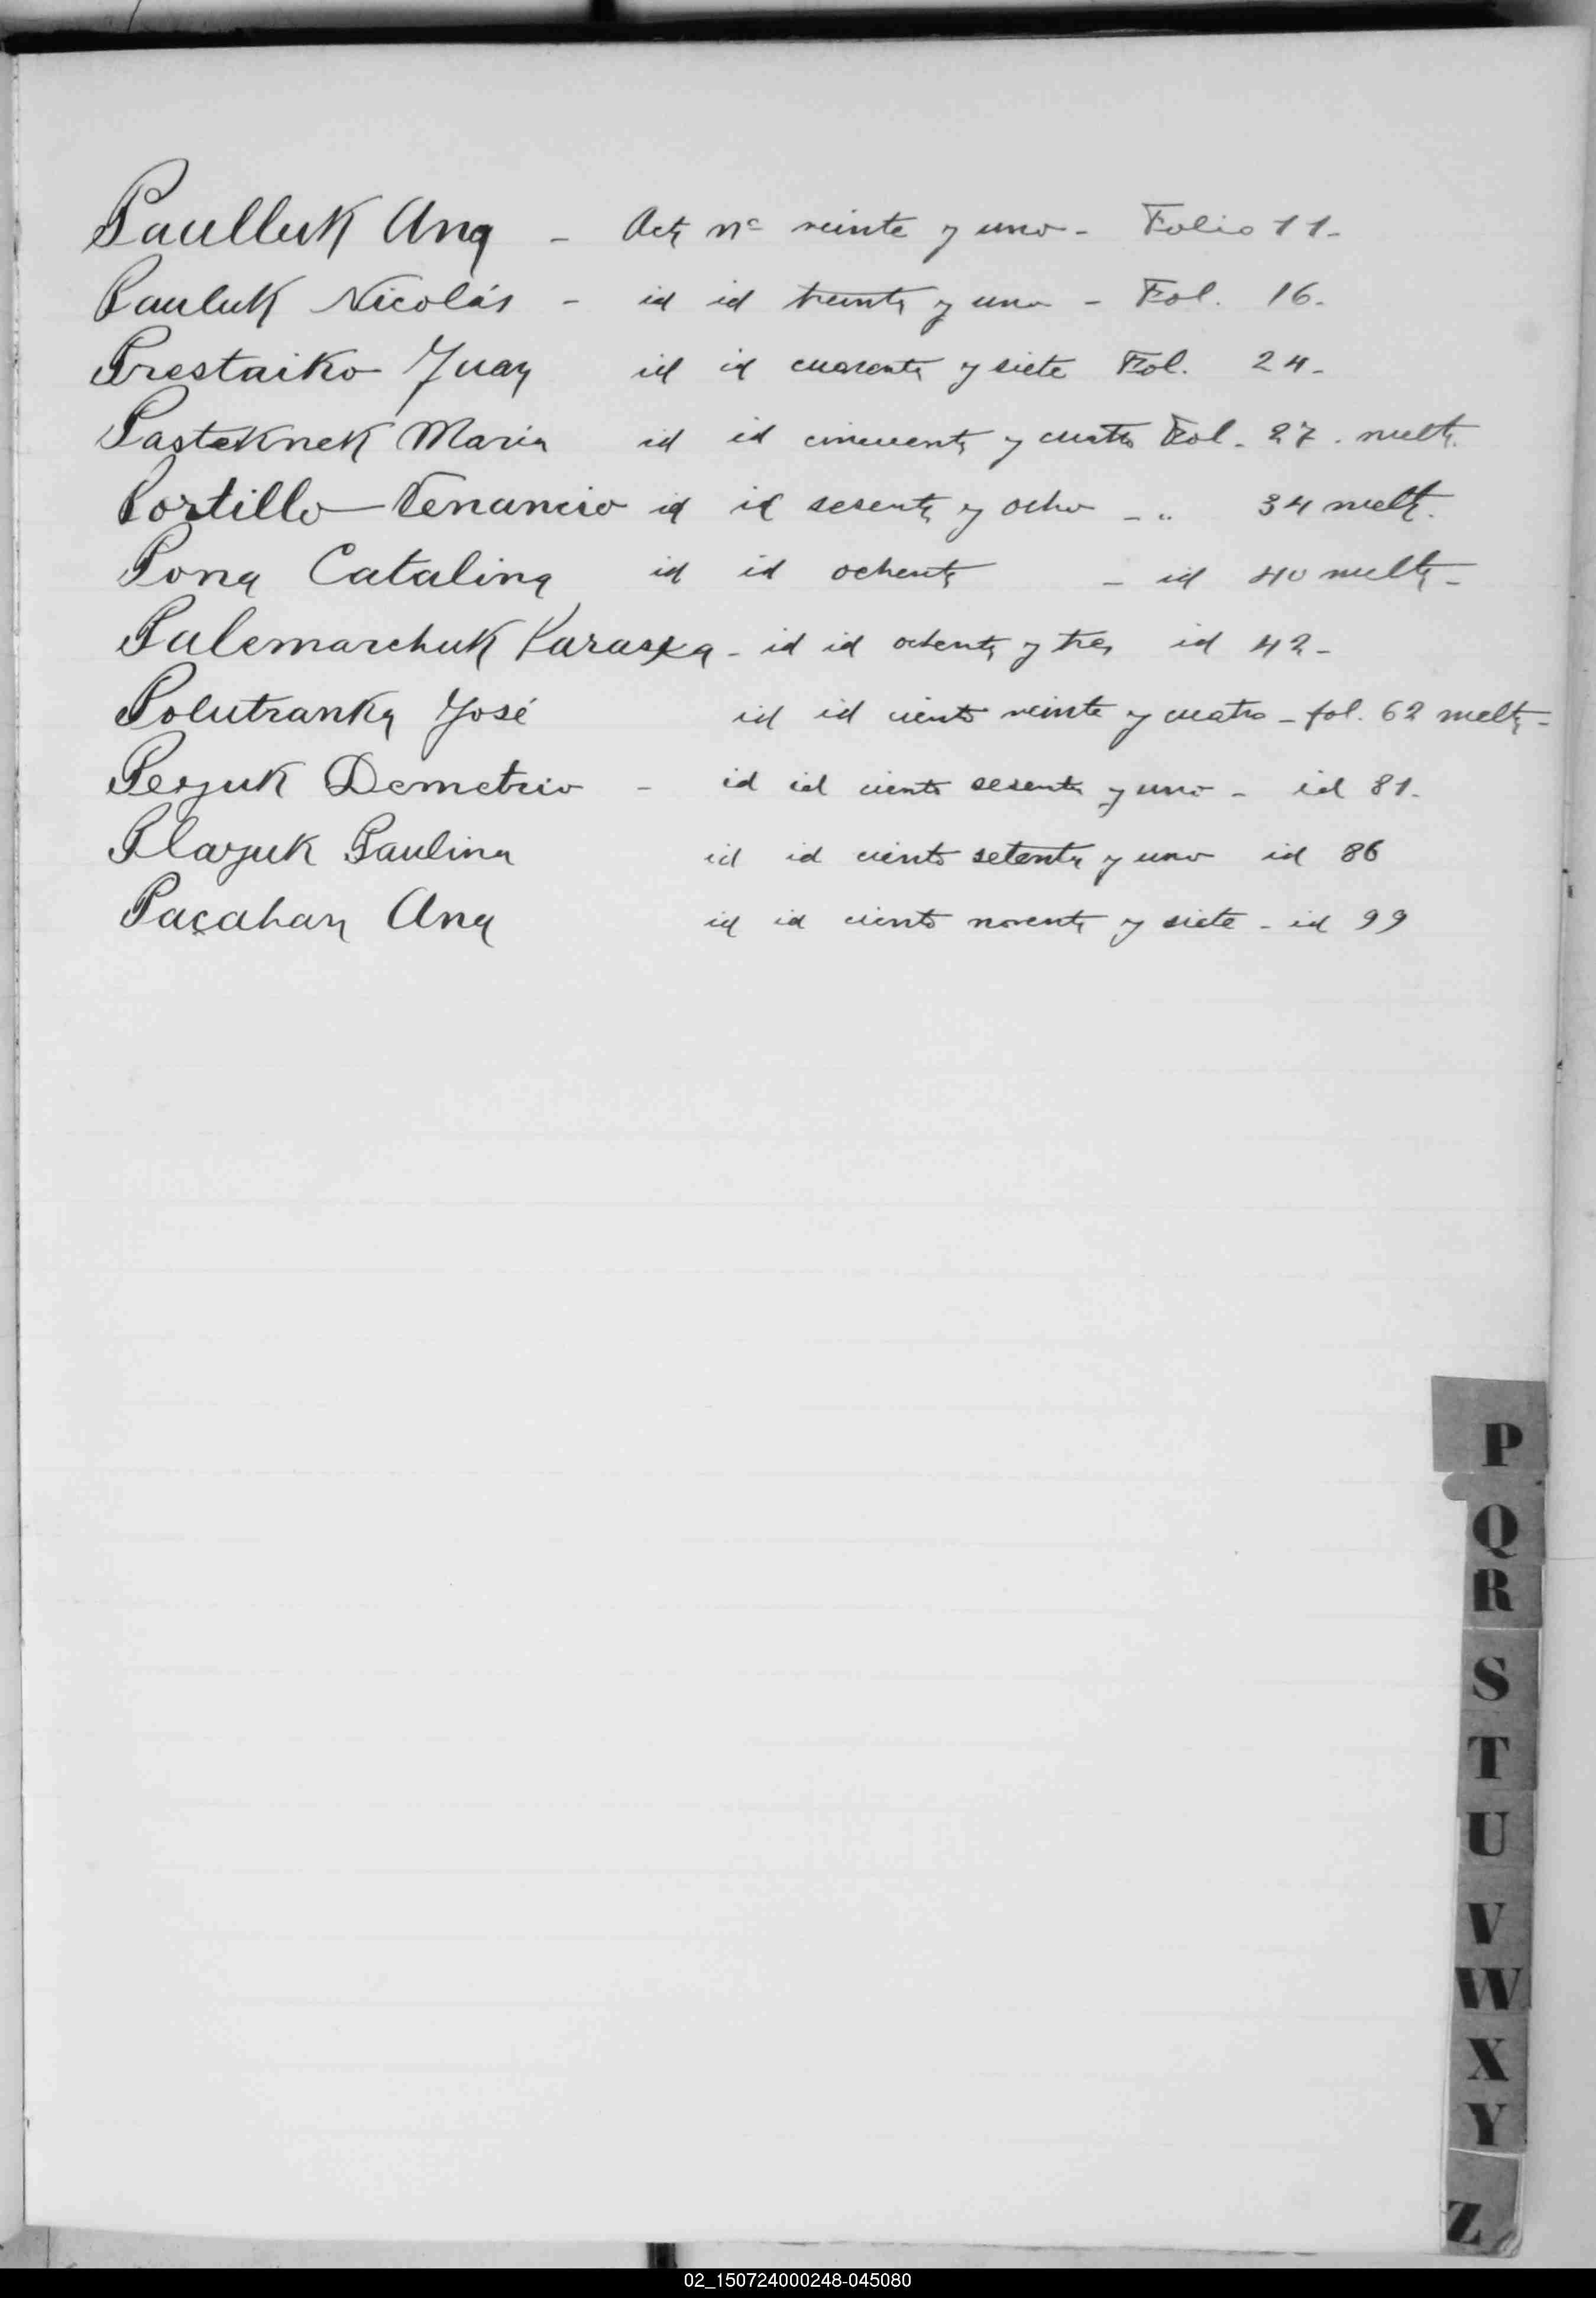 Paulluk Ana - Acta nº veinte y uno - Folio 11-
Pauluk Nicolás - id id treinta y uno - Fol. 16-
Prestaiko Juan id id cuarenta y siete Fol. 24-
Pasteknek Maria id id cincuenta y cuatro Fol. 27. vuelta.
Portillo Venancio id id sesenta y ocho - " 34 vuelta.
Pona Catalina id id ochenta - id 40 vuelta-
Palemarchuk Paraska - id id ochenta y tres id 42-
Polutranka José id id ciento veinte y cuatro - fol. 62 vuelta-
Perzuk Demetrio - id id ciento sesenta y uno - id 81-
Plazuk Paulina id id ciento setenta y uno id 86
Paçahan Ana id id ciento noventa y siete - id 99
P
Q
R
S
T
U
V
W
X
Y
Z
02_150724000248-045080